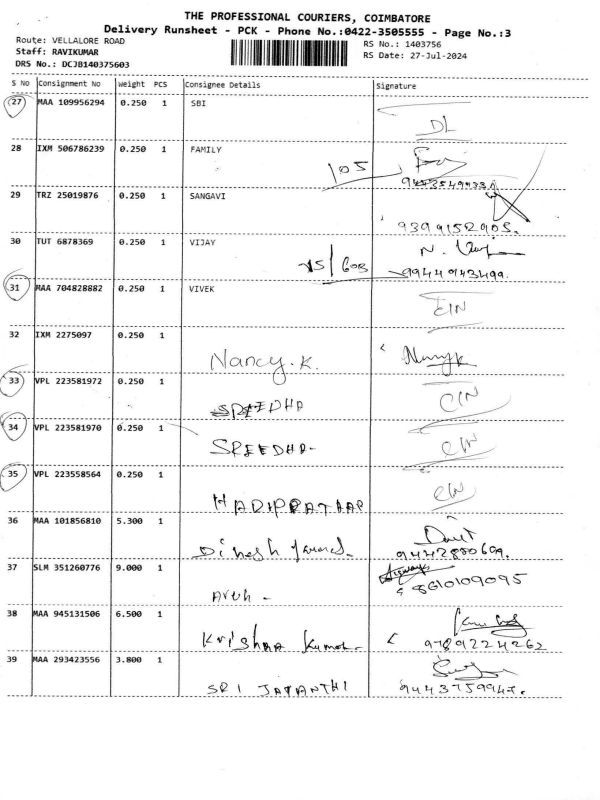 THE PROFESSIONAL COURIERS, COIMBATORE
Delivery Runsheet - PCK - Phone No.:0422-3505555 - Page No.:3
Route: VELLALORE ROAD
RS No.: 1403756
Staff: RAVIKUMAR
RS Date: 27-Jul-2024
DRS No.: DCJB140375603
S No Consignment No Weight PCS Consignee Details Signature
27 MAA 109956294 0.250 1 SBI
DL
28 IXM 506786239 0.250 1 FAMILY
105
29 TRZ 25019876 0.250 1 SANGAVI
9399152905.
30 TUT 6878369 0.250 1 VIJAY
15/603 9944943499.
31 MAA 704828882 0.250 1 VIVEK
32 IXM 2275097 0.250 1
Nancy. K.
33 VPL 223581972 0.250 1
SREEDHA
34 VPL 223581970 0.250 1
SREEDHA-
35 VPL 223558564 0.250 1
36 MAA 101856810 5.300 1
Dinesh 9442880609.
37 SLM 351260776 9.000 1
8610109095
38 MAA 945131506 6.500 1
Krishna Kumar- 9789224262
39 MAA 293423556 3.800 1
SRI JAYANTHI 9443759947.